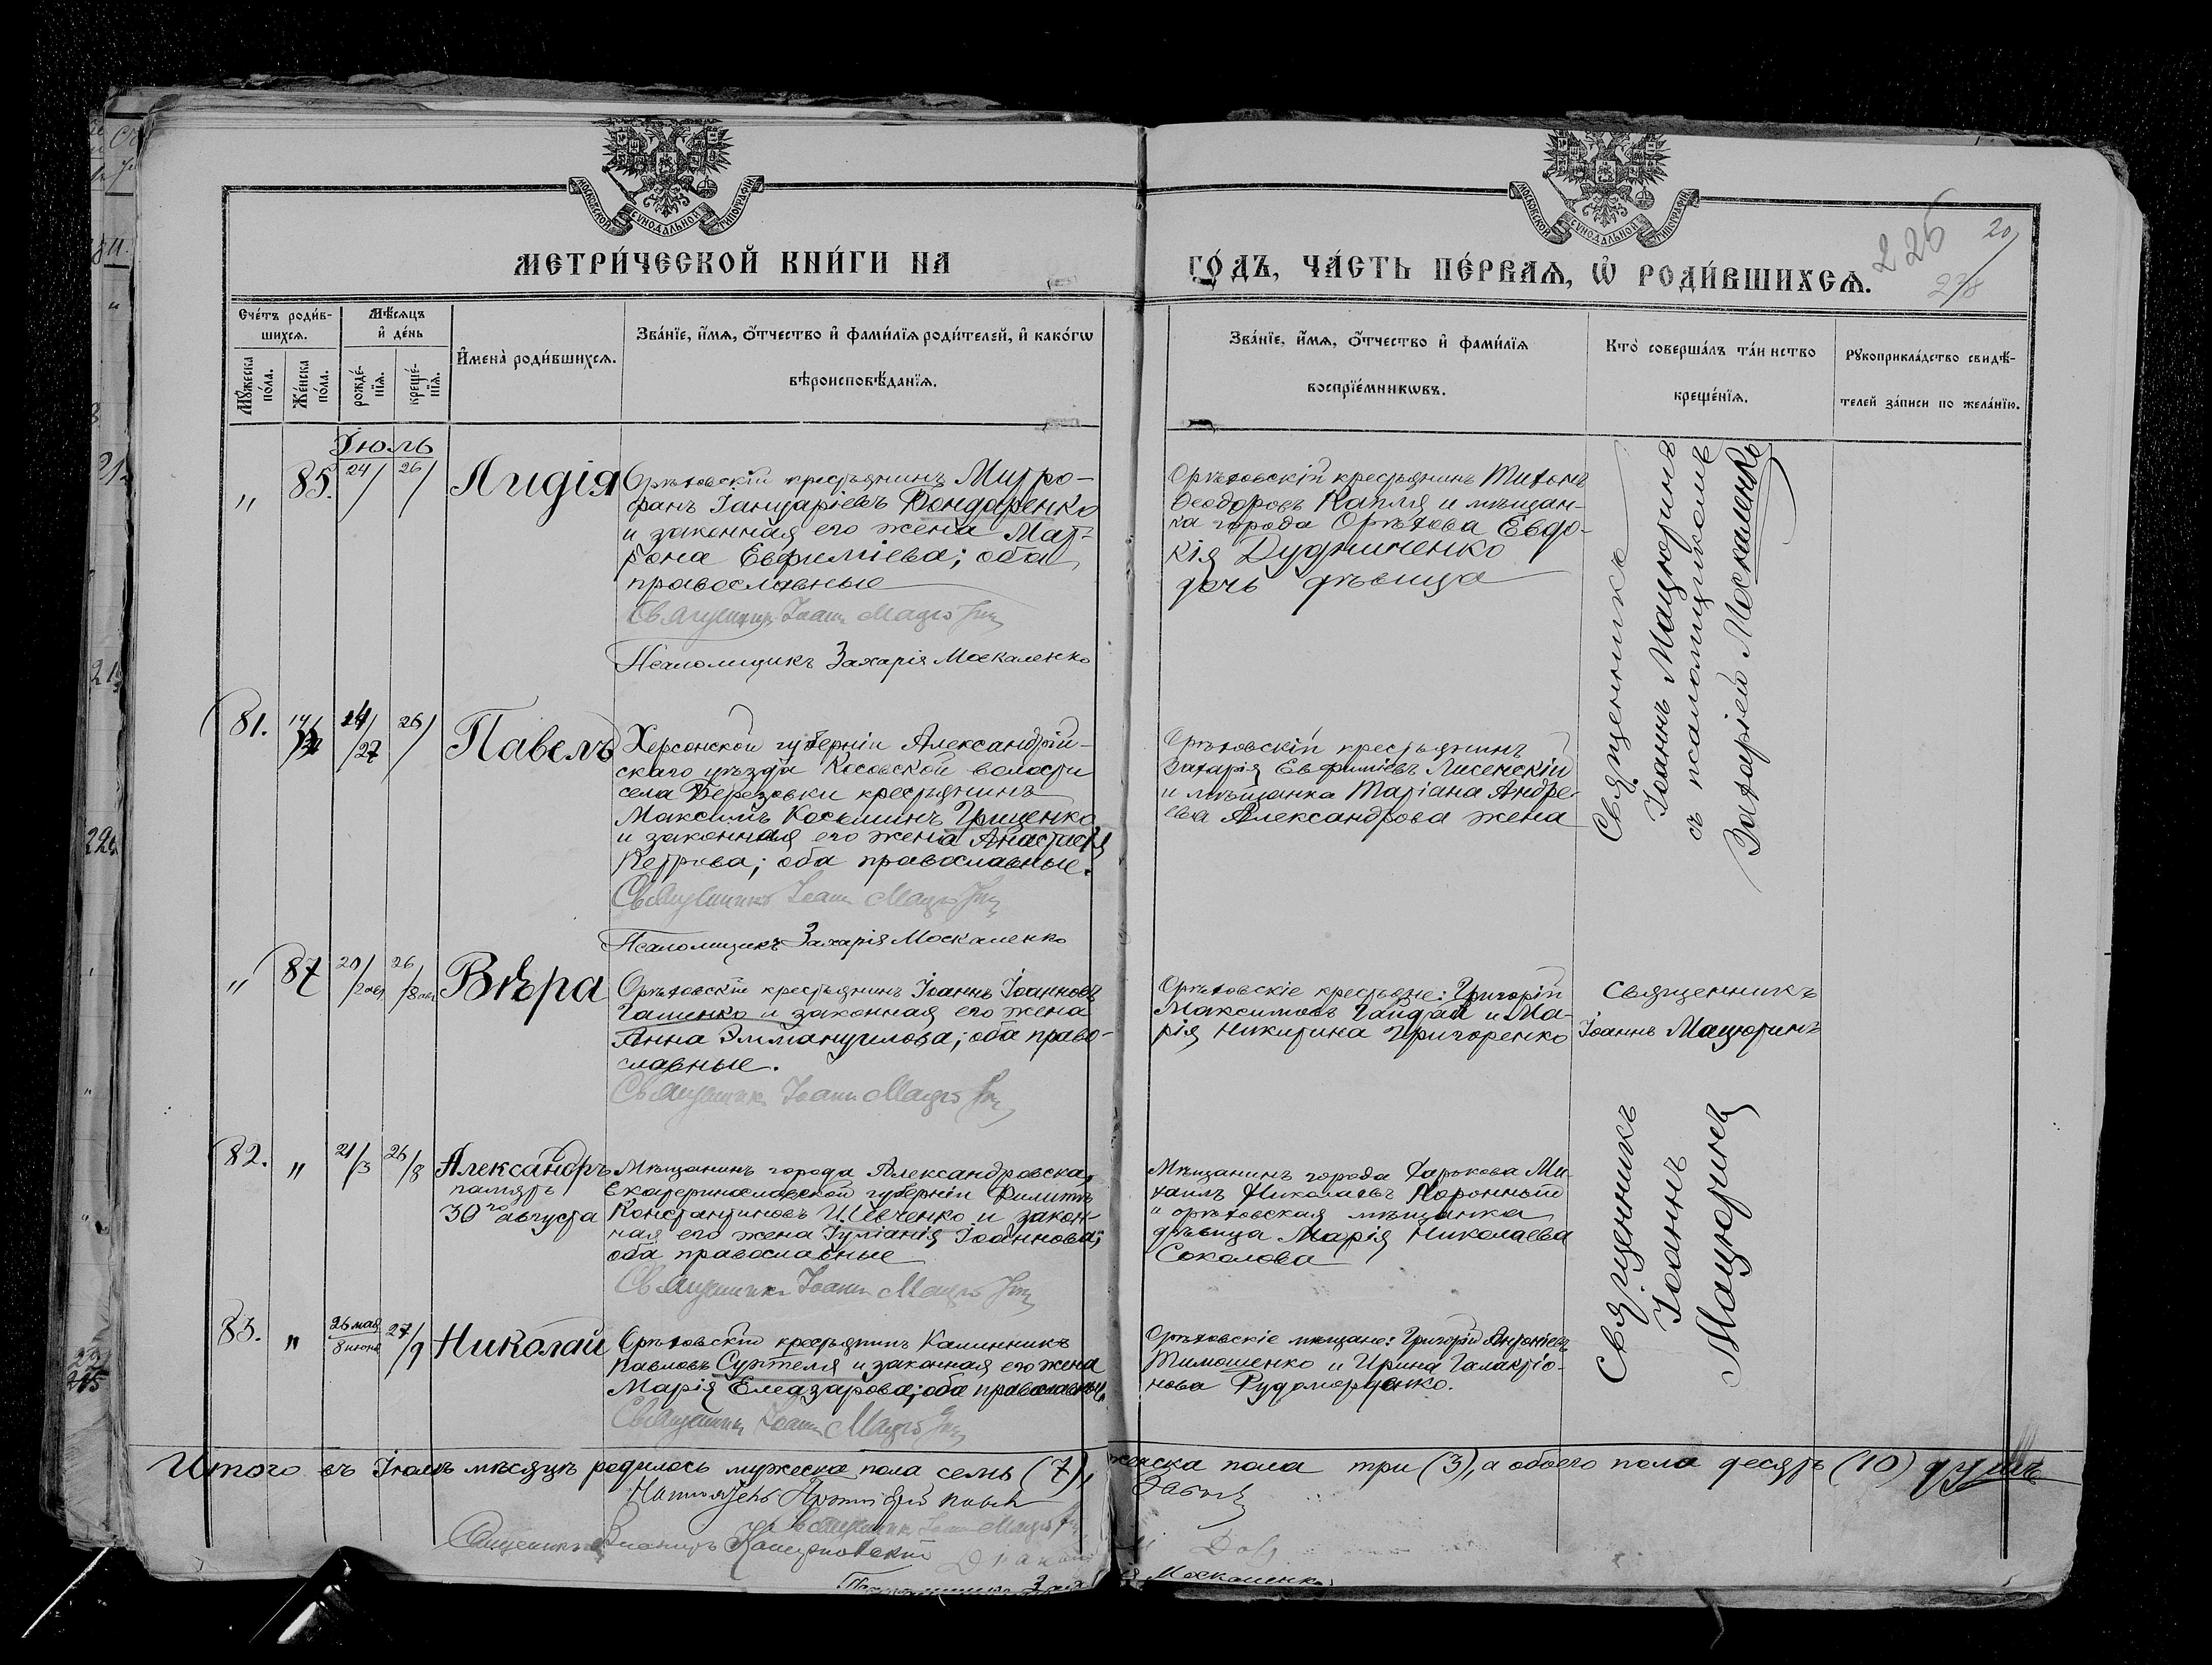 МОСКОВСКОЙ СѴНОДАЛЬНОЙ ТИПОГРАФІИ
МОСКОВСКОЙ СѴНОДАЛЬНОЙ ТИПОГРАФІИ
МЕТРИ́ЧЕСКОЙ КНИ́ГИ НА ГО́ДЪ, ЧА́СТЬ ПЕ́РВАѦ, Ѡ҆ РОДИ́ВШИХСѦ.
226
20
Сче́тъ роди́в-
шихсѧ.
Мѣ́сѧцъ
и҆ де́нь
Мꙋ́жеска
по́ла.
Же́нска
по́ла.
рожде́-
нїѧ.
креще́-
нїѧ.
И҆мена̀ роди́вшихсѧ.
Зва́нїе, и҆́мѧ, ѻ҆́тчество и҆ фами́лїѧ роди́телей, и҆ како́гѡ
вѣроисповѣ́данїѧ.
Зва́нїе, и҆́мѧ, ѻ҆́тчество и҆ фами́лїѧ
воспрїе́мникѡвъ.
Кто̀ соверша́лъ та́инство
креще́нїѧ.
Рꙋкоприкла́дство свидѣ́-
телей за́писи по жела́нїю.
Іюль
" 85. 24/ 26/ Лидія
Орѣховскій крестьянинъ Митро-
фанъ Іануаріевъ Бондаренко
и законная его жена Мат-
рона Евфиміева; оба
православные
Священникъ Іоаннъ Мацюринъ
Псаломщикъ Захарія Москаленко
Орѣховскій крестьянинъ Тихонъ
Ѳеодоровъ Капля и мѣщан-
ка города Орѣхова Евдо-
кія Дудниченко
дочь дѣвица
Священникъ
Іоаннъ Мацюринъ
съ псаломщикомъ
Захаріей Москаленко
81. 14/ 26/ Павелъ
/27
Херсонской губерніи Александрій-
скаго уѣзда Косовской волости
села Березовки крестьянинъ
Максимъ Косьминъ Гриценко
и законная его жена Анастасія
Петрова; оба православные.
Священникъ Іоаннъ Мацюринъ
Псаломщикъ Захарія Москаленко
Орѣховскій крестьянинъ
Захарія Евфиміевъ Лисенскій
и мѣщанка Маріана Андре-
ева Александрова жена
" 87 20/2 авг 26/8 авг Вѣра
Орѣховскій крестьянинъ Іоаннъ Іоанновъ
Гаменко и законная его жена
Анна Эммануилова; оба право-
славные.
Священникъ Іоаннъ Мацюринъ
Орѣховскіе крестьяне: Григорій
Максимовъ Гайдай и Ма-
рія Никитина Григоренко
Священникъ
Іоаннъ Мацюринъ
82. " 21/3 26/8 Александръ
память
30го августа
Мѣщанинъ города Александровска,
Екатеринославской губерніи Филиппъ
Константиновъ Шевченко и закон-
ная его жена Іуліанія Іоаннова;
оба православные
Священникъ Іоаннъ Мацюринъ
Мѣщанинъ города Харькова Ми-
хаилъ Николаевъ Коронный
и орѣховская мѣщанка
дѣвица Марія Николаева
Соколова
Священникъ
Іоаннъ
Мацюринъ
83. " 26 мая 27/9 Николай
8 июня
Орѣховскій крестьянинъ Каллинникъ
Павловъ Суптеля и законная его жена
Марія Елеазарова; оба православные
Священникъ Іоаннъ Мацюринъ
Орѣховскіе мѣщане: Григорій Антоніевъ
Тимошенко и Ирина Галактіо-
нова Рудоморденко.
Итого въ Іюлѣ мѣсяцѣ родилось мужеска пола семь (7), женска пола три (3), а обоего пола десять (10) душъ
Настоятель Протоіерей
Священникъ Іоаннъ Мацюринъ
Священникъ
Діаконъ
Псаломщикъ Захарія Москаленко